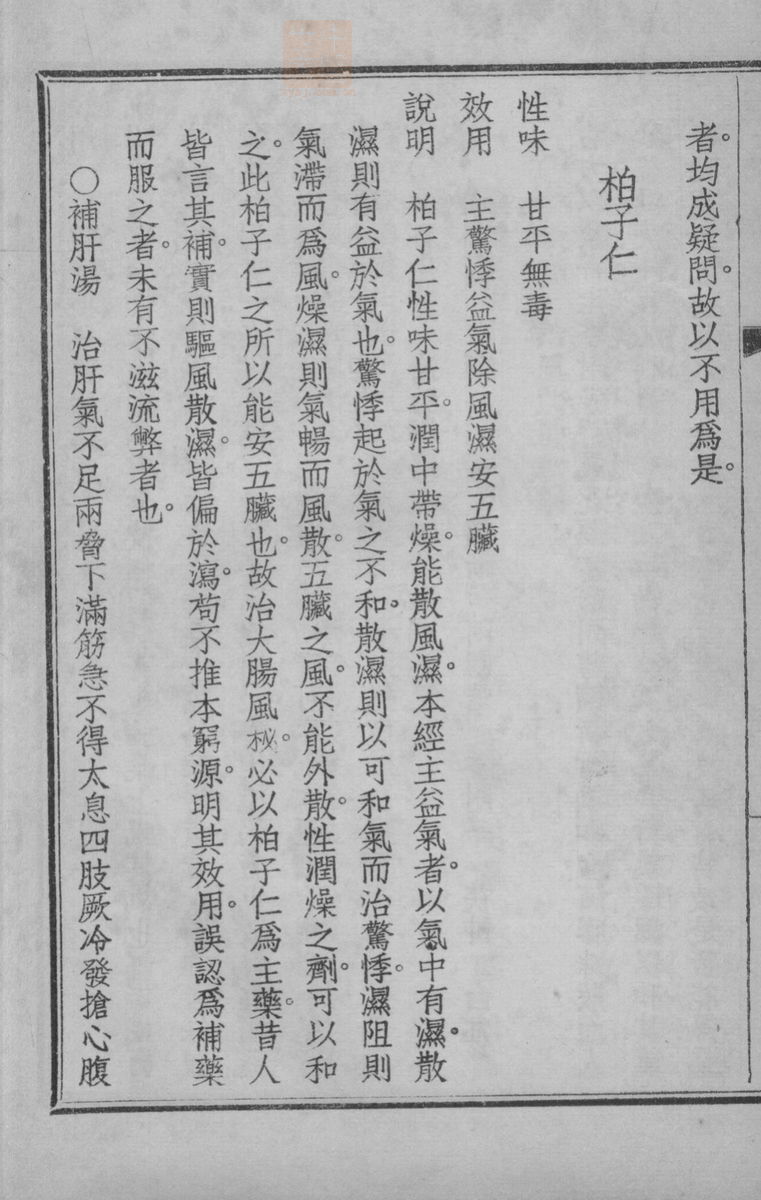 者。均成疑問。故以不用爲是。
柏子仁
性味　甘平無毒
效用　主驚悸益氣除風濕安五臟
說明　柏子仁性味甘平。潤中帶燥。能散風濕。本經主益氣者。以氣中有濕。散
濕則有益於氣也。驚悸起於氣之不和。散濕則以可和氣而治驚悸。濕阻則
氣滯而爲風。燥濕則氣暢而風散。五臟之風。不能外散。性潤燥之劑。可以和
之。此柏子仁之所以能安五臟也。故治大腸風秘。必以柏子仁爲主藥。昔人
皆言其補。實則驅風散濕。皆偏於瀉。苟不推本窮源。明其效用。誤認爲補藥
而服之者。未有不滋流弊者也。
〇補肝湯　治肝氣不足兩脅下滿筋急不得太息四肢厥冷發搶心腹